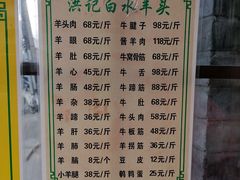 洪记白水羊头
羊头肉 68元/斤 牛腱子 98元/斤
羊眼 68元/斤 酱羊肉 118元/斤
羊肚 68元/斤 牛窝骨筋 68元/斤
羊心 45元/斤 牛舌 98元/斤
羊肠 48元/斤 牛蹄筋 48元/斤
羊杂 38元/斤 牛肚 48元/斤
羊蹄 36元/斤 牛头肉 58元/斤
羊肝 36元/斤 牛板筋 48元/斤
羊肺 30元/斤 羊拐筋 36元/斤
羊脑 8元/个 豆皮 12元/斤
小羊腿 38元/斤 鹌鹑蛋 25元/斤